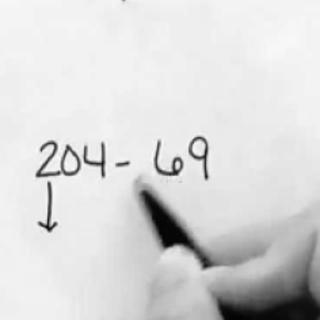 204 - 69